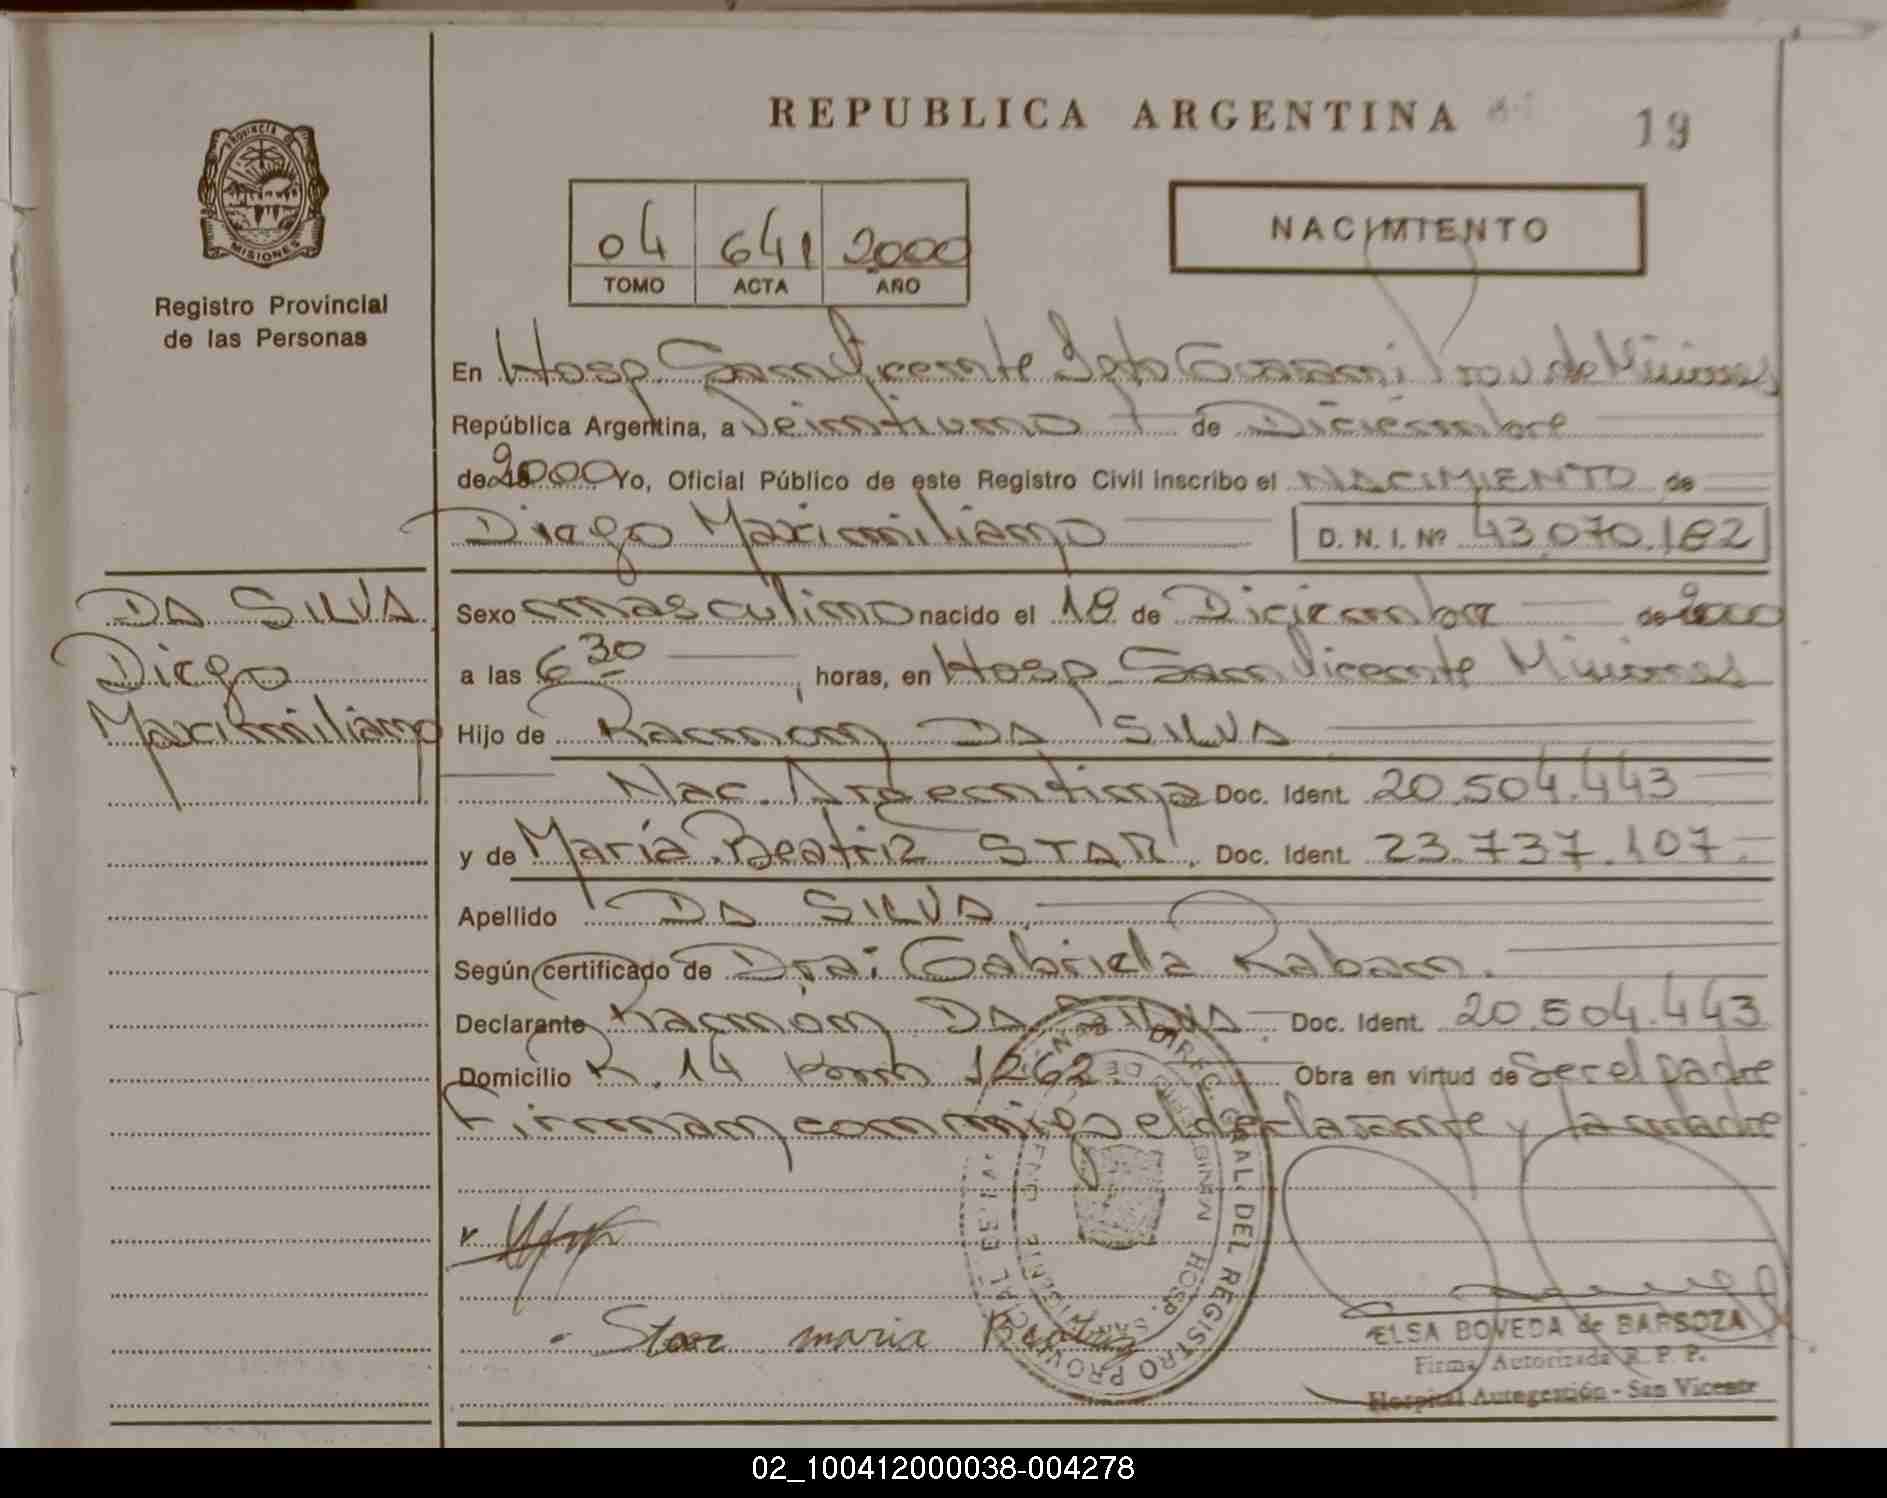 REPUBLICA ARGENTINA
19
PROVINCIA DE MISIONES
Registro Provincial
de las Personas
04 641 2000
TOMO ACTA AÑO
NACIMIENTO
En Hosp San Vicente Dpto Guarani Prov de Misiones
República Argentina, a Veintiuno de Diciembre
de 2000 Yo, Oficial Público de este Registro Civil inscribo el NACIMIENTO de
Diego Maximiliano D. N. I. Nº 43.070.182
DA SILVA
Diego
Maximiliano
Sexo masculino nacido el 18 de Diciembre de 2000
a las 6 30 horas, en Hosp San Vicente Misiones
Hijo de Ramón DA SILVA
Nac. Argentina Doc. Ident. 20.504.443
y de María Beatriz STAR Doc. Ident. 23.737.107
Apellido DA SILVA
Según certificado de Dra: Gabriela Raban.
Declarante Ramón DA SILVA Doc. Ident. 20.504.443
Domicilio R. 14 Km 1262 Obra en virtud de Ser el padre
Firman conmigo el declarante y la madre
DIREC. GRAL. DEL REGISTRO PROVINCIAL
HOSP. SAN VICENTE
Star maria Beatriz
ELSA BOVEDA de BARSOZA
Firma Autorizada R. P. P.
Hospital Autogestión - San Vicente
02_100412000038-004278